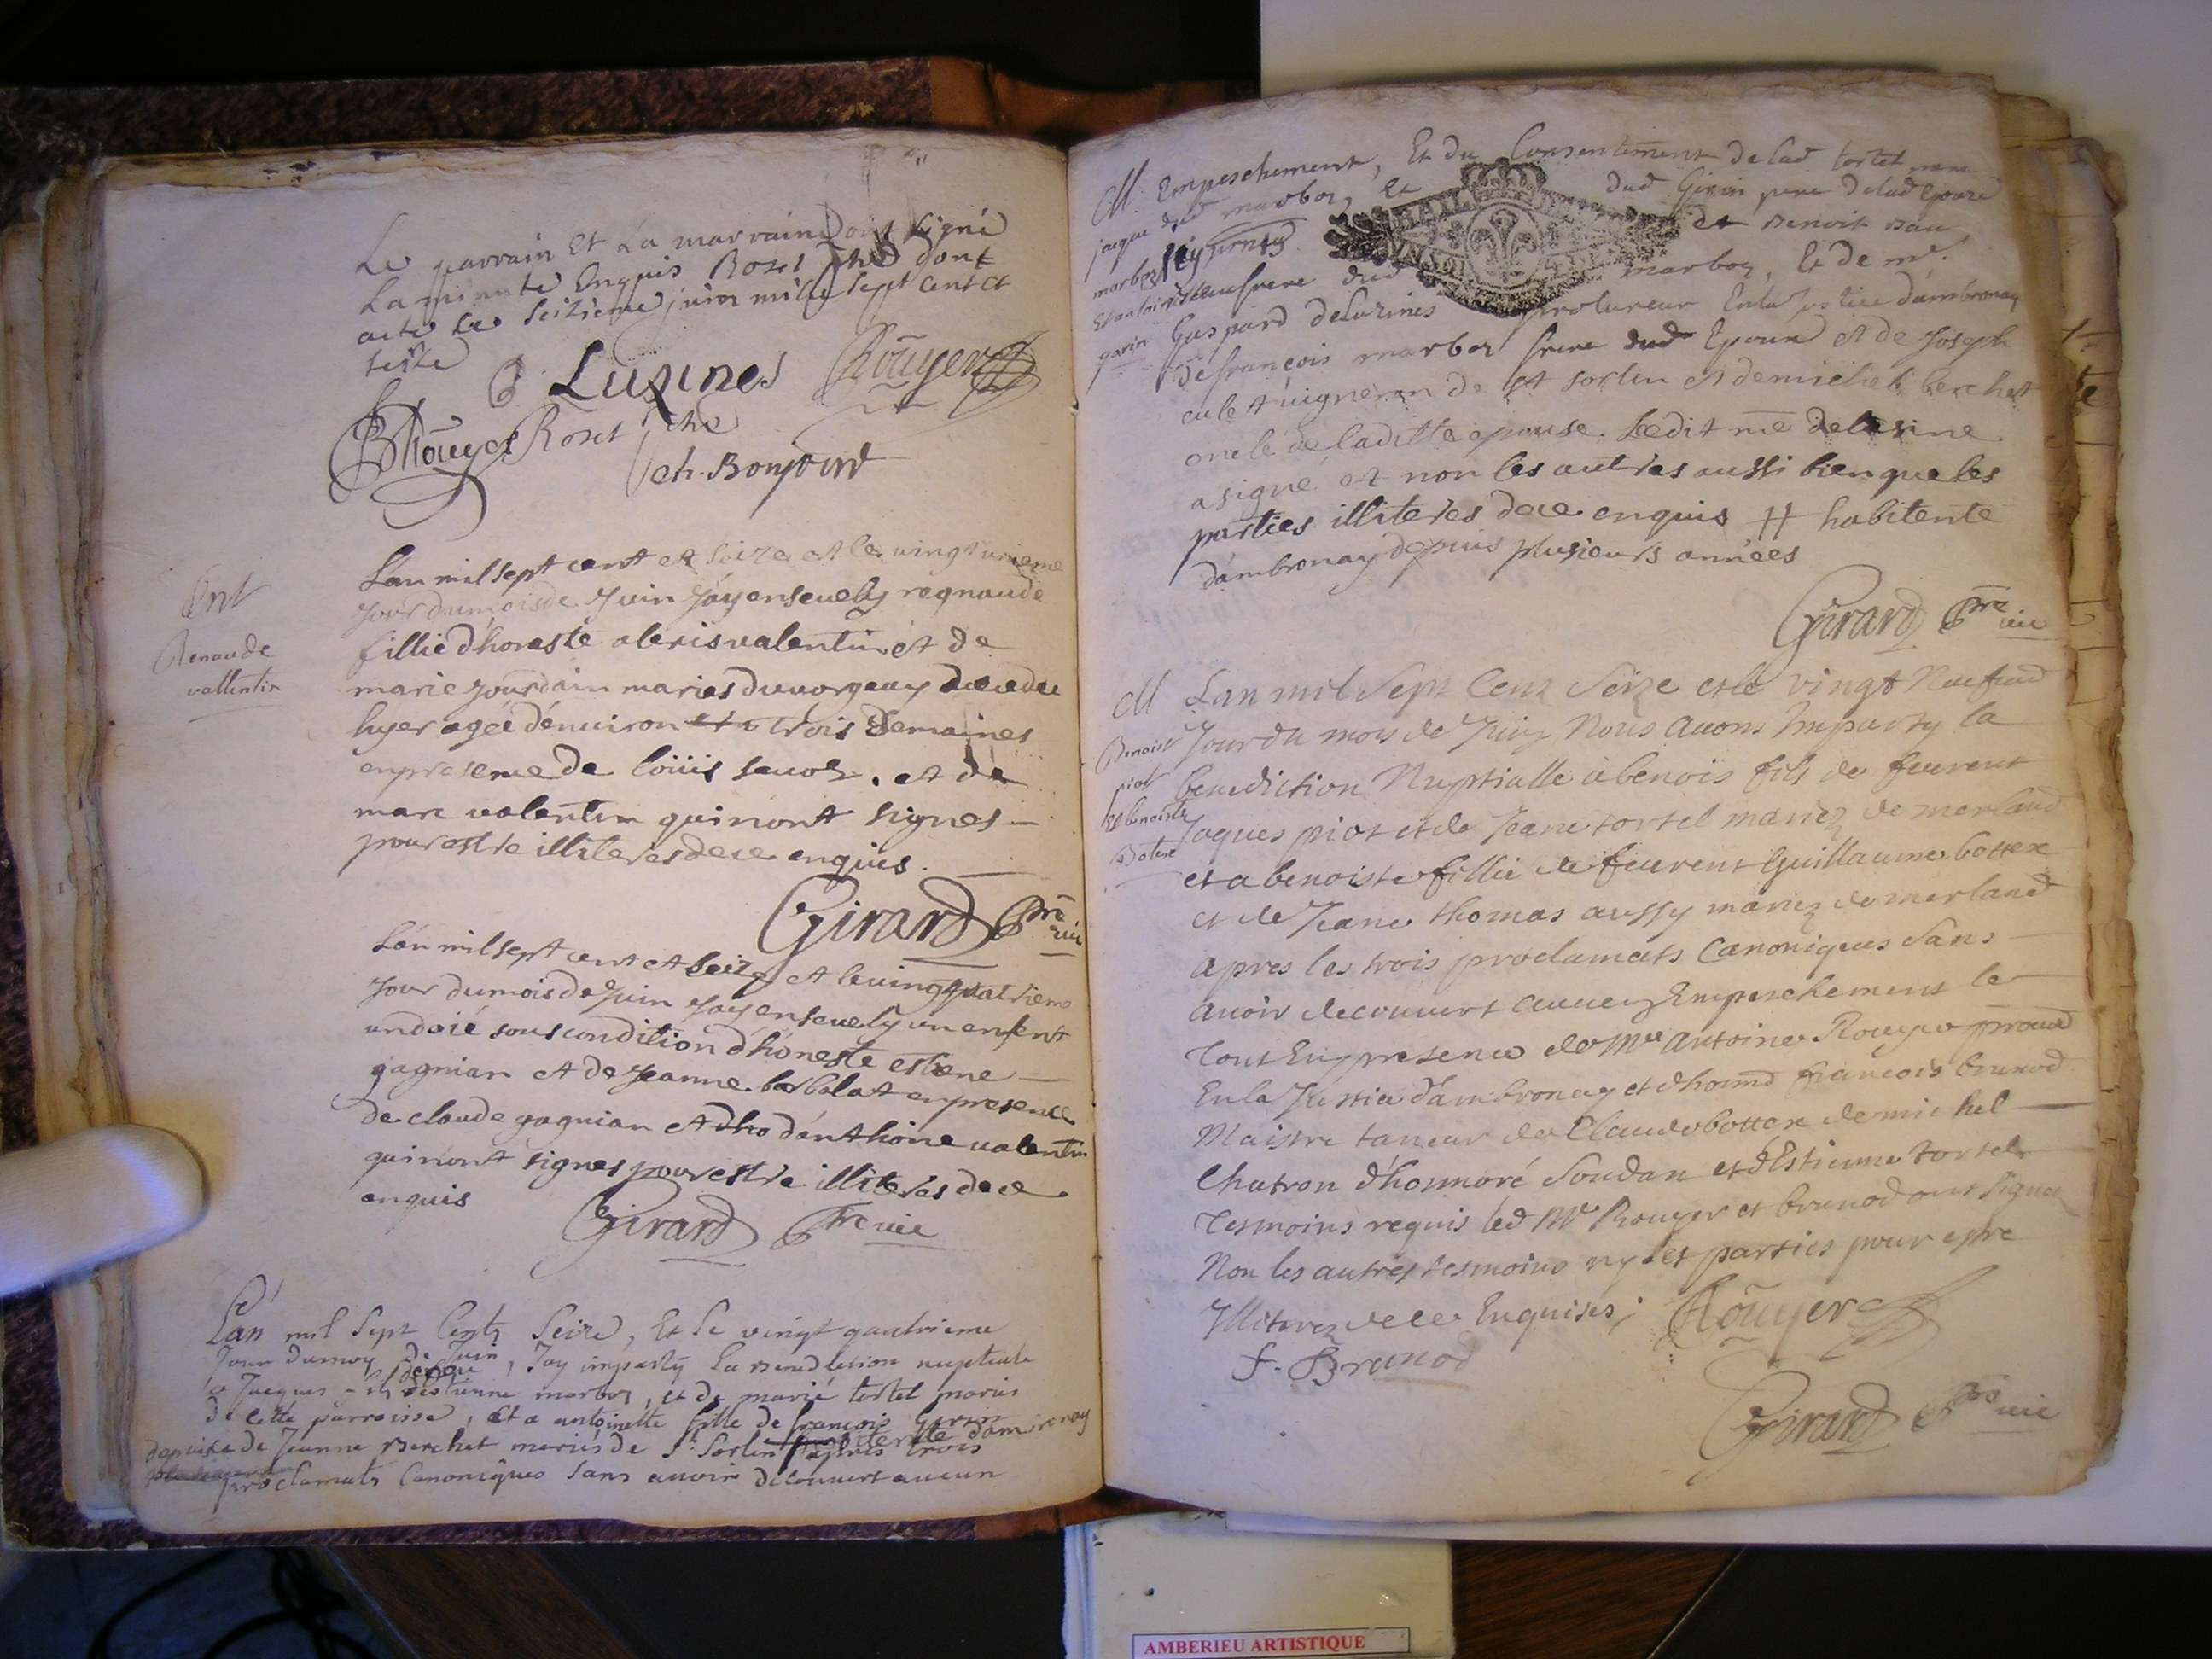 Le parrain Et La marraine ont signé
La minute Enquis Roset dont
acte le seizieme juin mille sept cent et
seize
Luzines Rouyer
B Rouyer Roset
ch. Bonjour
Ent
Renaude
vallentin
L'an mil sept cent et seize et le vingt unieme
jour du mois de Juin J'ay ensevely regnaude
fillie d'honeste alexis valentin et de
marie jourdain maries du vorgeay decedee
hyer agée d'enuiron trois semaines
en presence de loüis sauoz. et de
marc valentin qui n'ont signes
pour estre illiteres de ce enquis.
Girard Pre vic
L'an mil sept cent et seize et le ving quatrieme
jour du mois de Juin J'ay ensevely un enfent
undoié sous condition d'honeste estiene
gagnian et de Jeanne barbalat en presence
de claude gagnian et d'ho d'anthoine valentin
qui n'ont signes pour estre illiteres de ce
enquis
Girard Pre vic
L'an mil sept Cents seize, Et le vingt quatrieme
Jour du moy de Juin, J'ay imparty la benediction nuptiale
a Jacques fils d'estienne marboz, et de marie tortel mariés
de cette parroisse, et a antoinette fille de françois Girin
depuis et de Jeanne Berchet mariés de St Sorlin habitente d'ambronay
apres trois
proclamats Canoniques sans auoir découuert aucun
M
jacque
marboz
Et antoinette
garin
Empeschement, Et du Consentiment de lad tortel mere
dud marboz, Et dud Girin pere de lad Epouze
et Benoit
beaufrere dud marboz, Et de me.
Gaspard deluzines procureur En la justice d'ambronay
de françois marboz frere dud Epoux et de Joseph
culet uigneron de st sorlin et de michel berchet
oncle de laditte epouse. Ledit me deluzine
a signé et non les autres aussi bien que les
parties illiteres de ce enquis # habitente
d'ambronay depuis plusieurs années
Girard Pre vic
M
Benoist
piot
et benoiste
Botex
L'an mil Sept Cent Seize et le vingt Neufuie
Jour du mois de Juin Nous auons Imparty la
benediction Nuptialle à benois fils de feurent
Jaques piot et de Jeane tortel mariez de merland
et a benoiste fillie de feurent Guillaume bottex
et de Jeane thomas aussy mariez de merland
apres les trois proclamats Canoniques sans
auoir decouuert aucun Empeschement le
tout En presence de Me Antoine Rouyer
En la Justice d'ambronay et d'hon françois brunod
Maistre taneur de Claude bottex de michel
Chatron d'honnoré Soudan et d'Estienne tortel
tesmoins requis led Me Rouyer et brunod ont signé
Non les autres tesmoins ny les parties pour estre
Illiterez de ce Enquises; Rouyer
f. Brunod
Girard Pre vic
AMBERIEU ARTISTIQUE